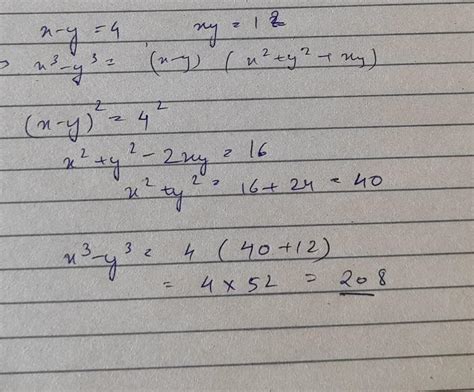 x-y = 4, xy = 12
> x³-y³ = (x-y) (x²+y²+xy)
(x-y)² = 4²
x²+y²-2xy = 16
x²+y² = 16+24 = 40
x³-y³ = 4 (40+12)
= 4 × 52 = 208